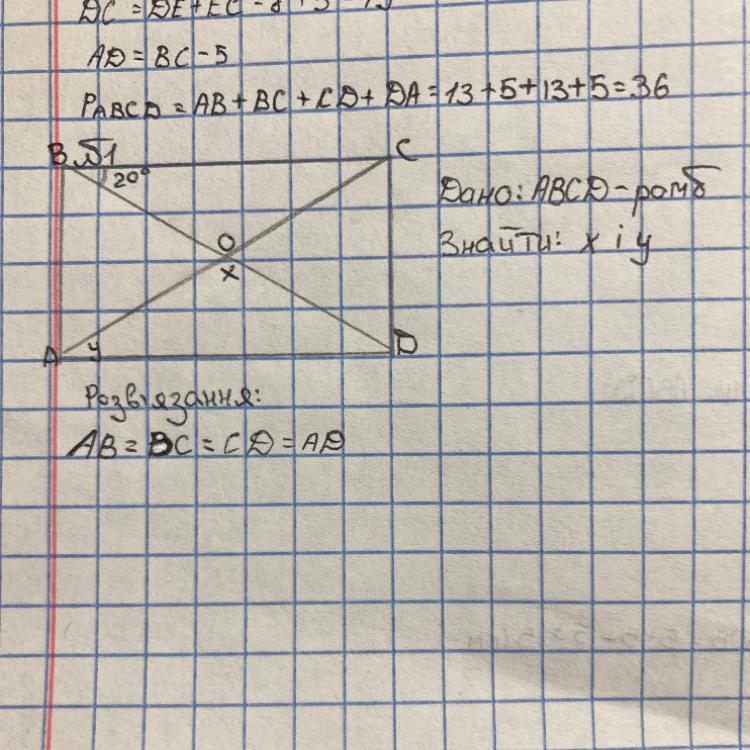 DC = DE + EC
AD = BC - 5
PABCD = AB + BC + CD + DA = 13 + 5 + 13 + 5 = 36
B №1 C
20°
Дано: ABCD - ромб
Знайти: x і y
O
x
A y D
Розв'язання:
AB = BC = CD = AD